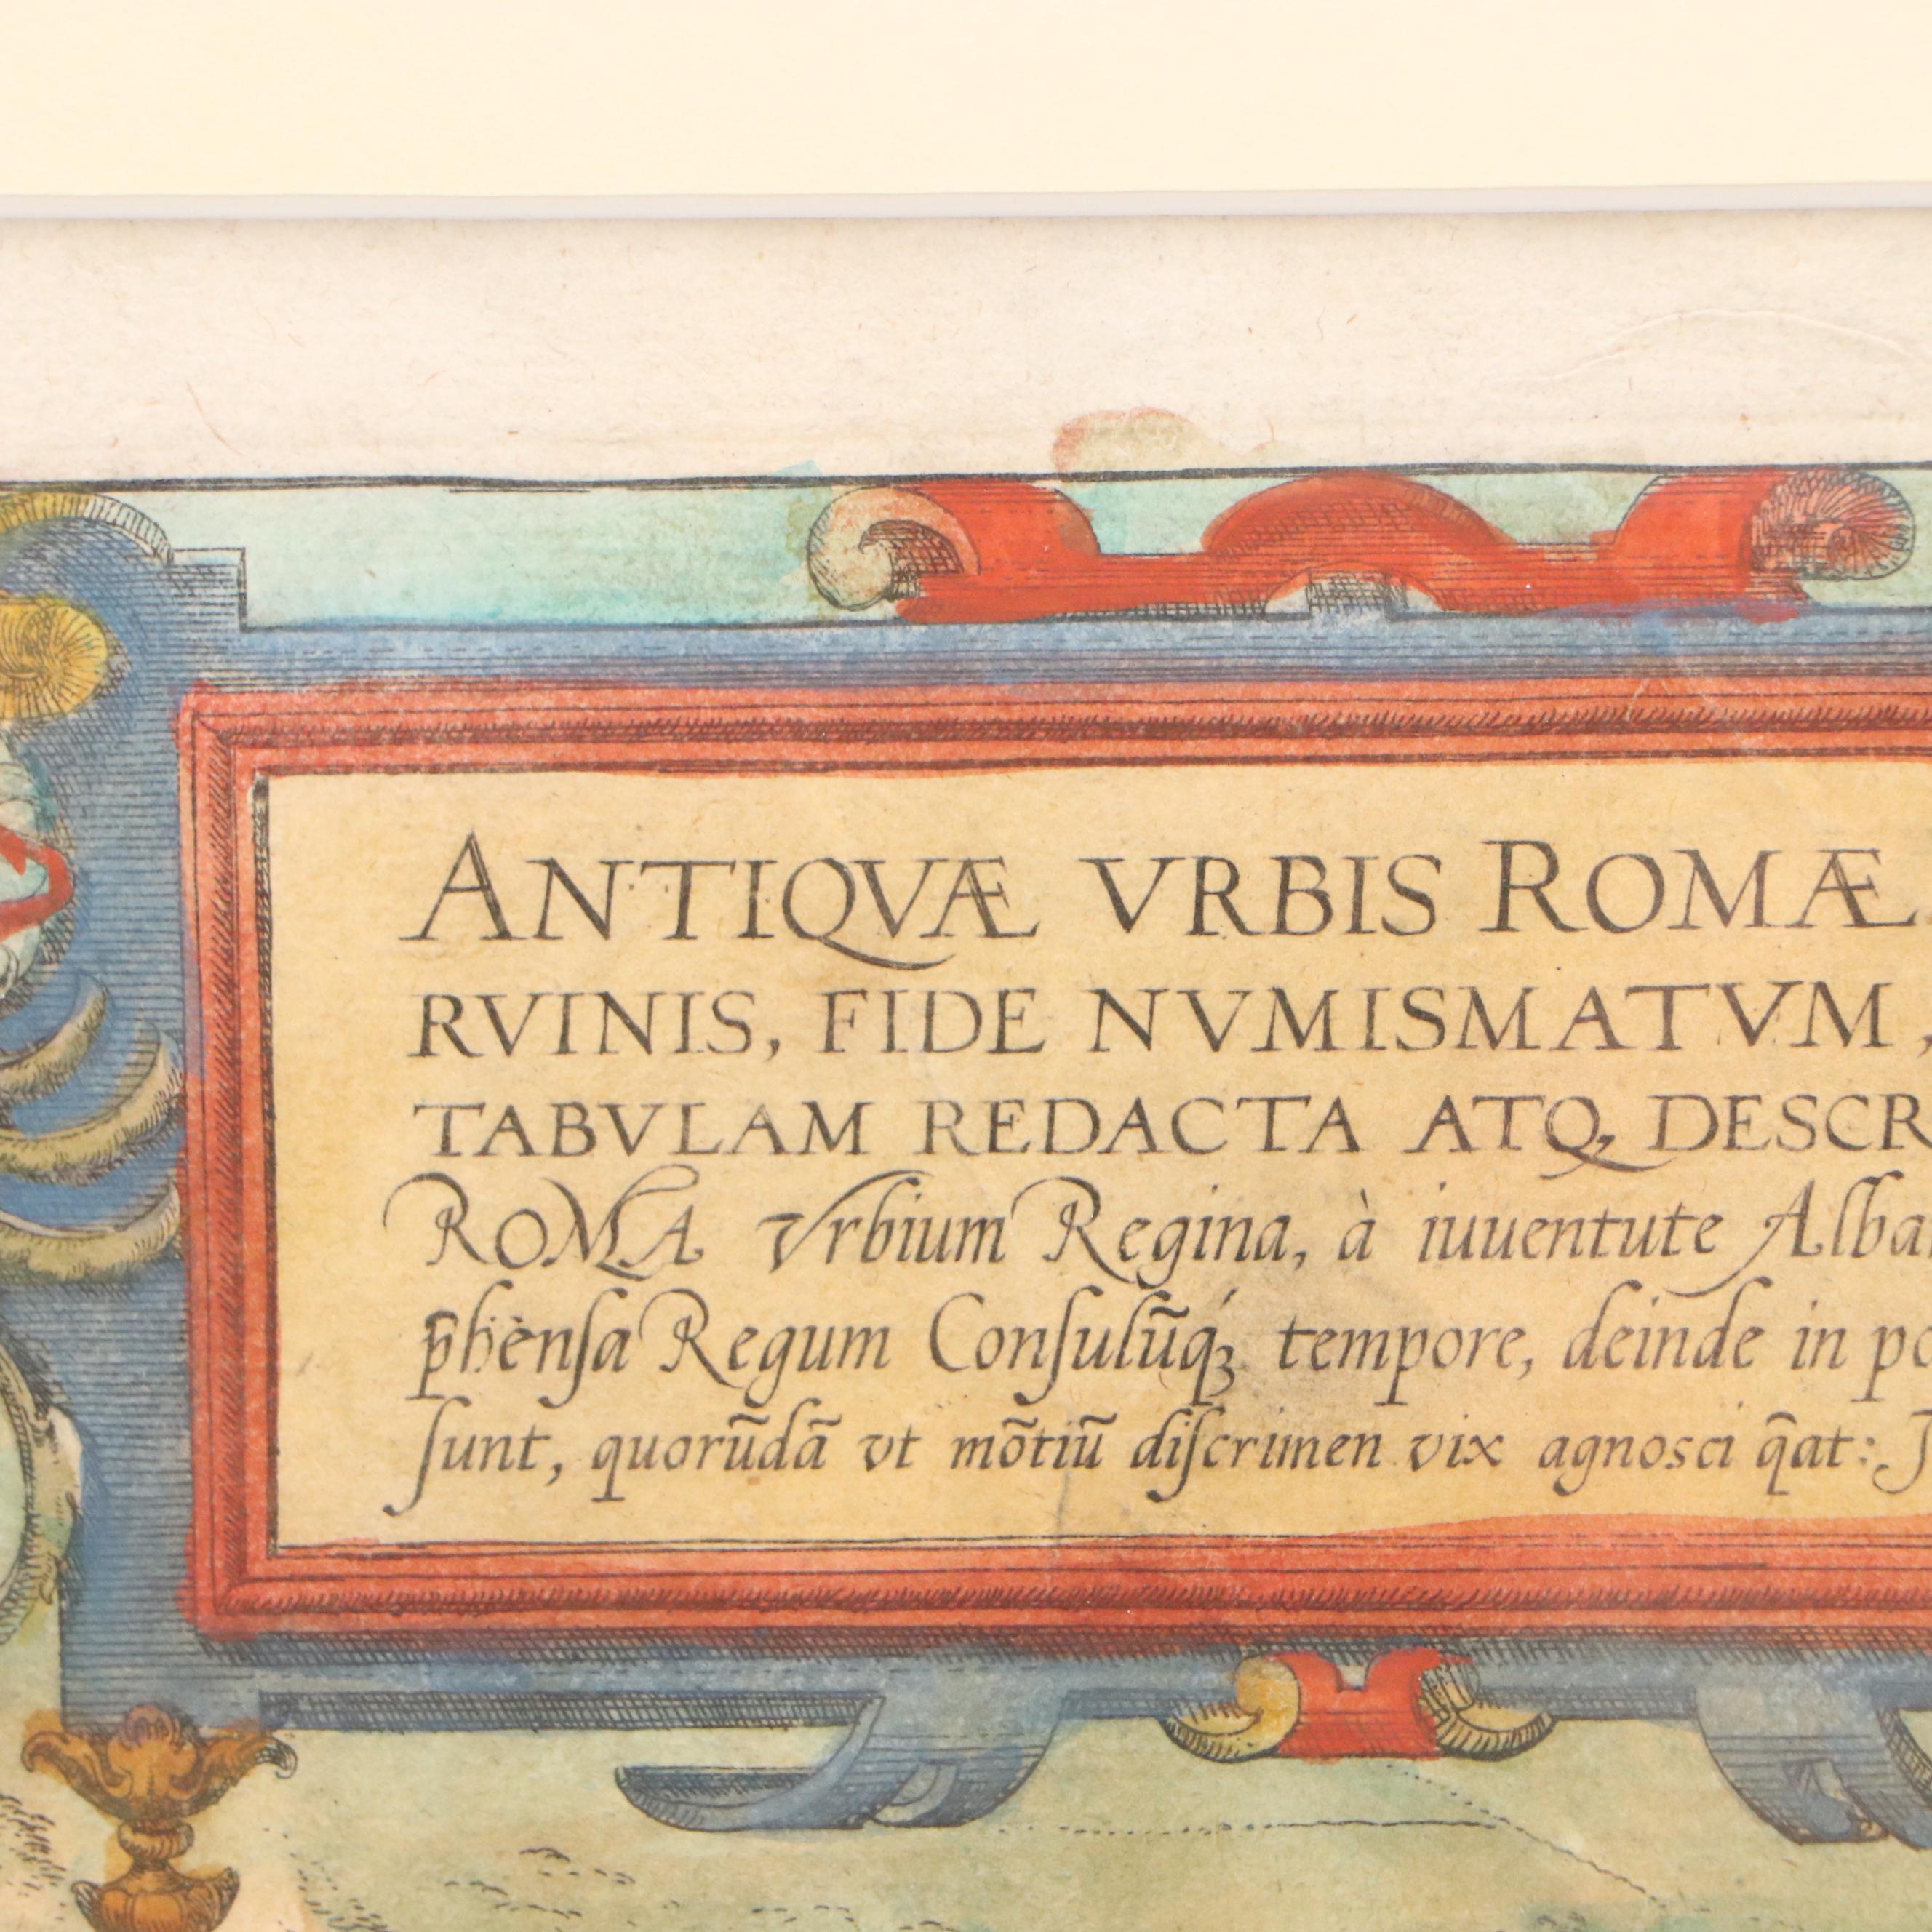 ANTIQVÆ VRBIS ROMÆ
RVINIS, FIDE NVMISMATVM,
TABVLAM REDACTA ATQ, DESCR
ROMA Vrbium Regina, à iuuentute Alba
p̄hensa Regum Conſulūq́ꝫ tempore, deinde in po
ſunt, quorūdā vt mōtiū diſcrimen vix agnosci q̄at: